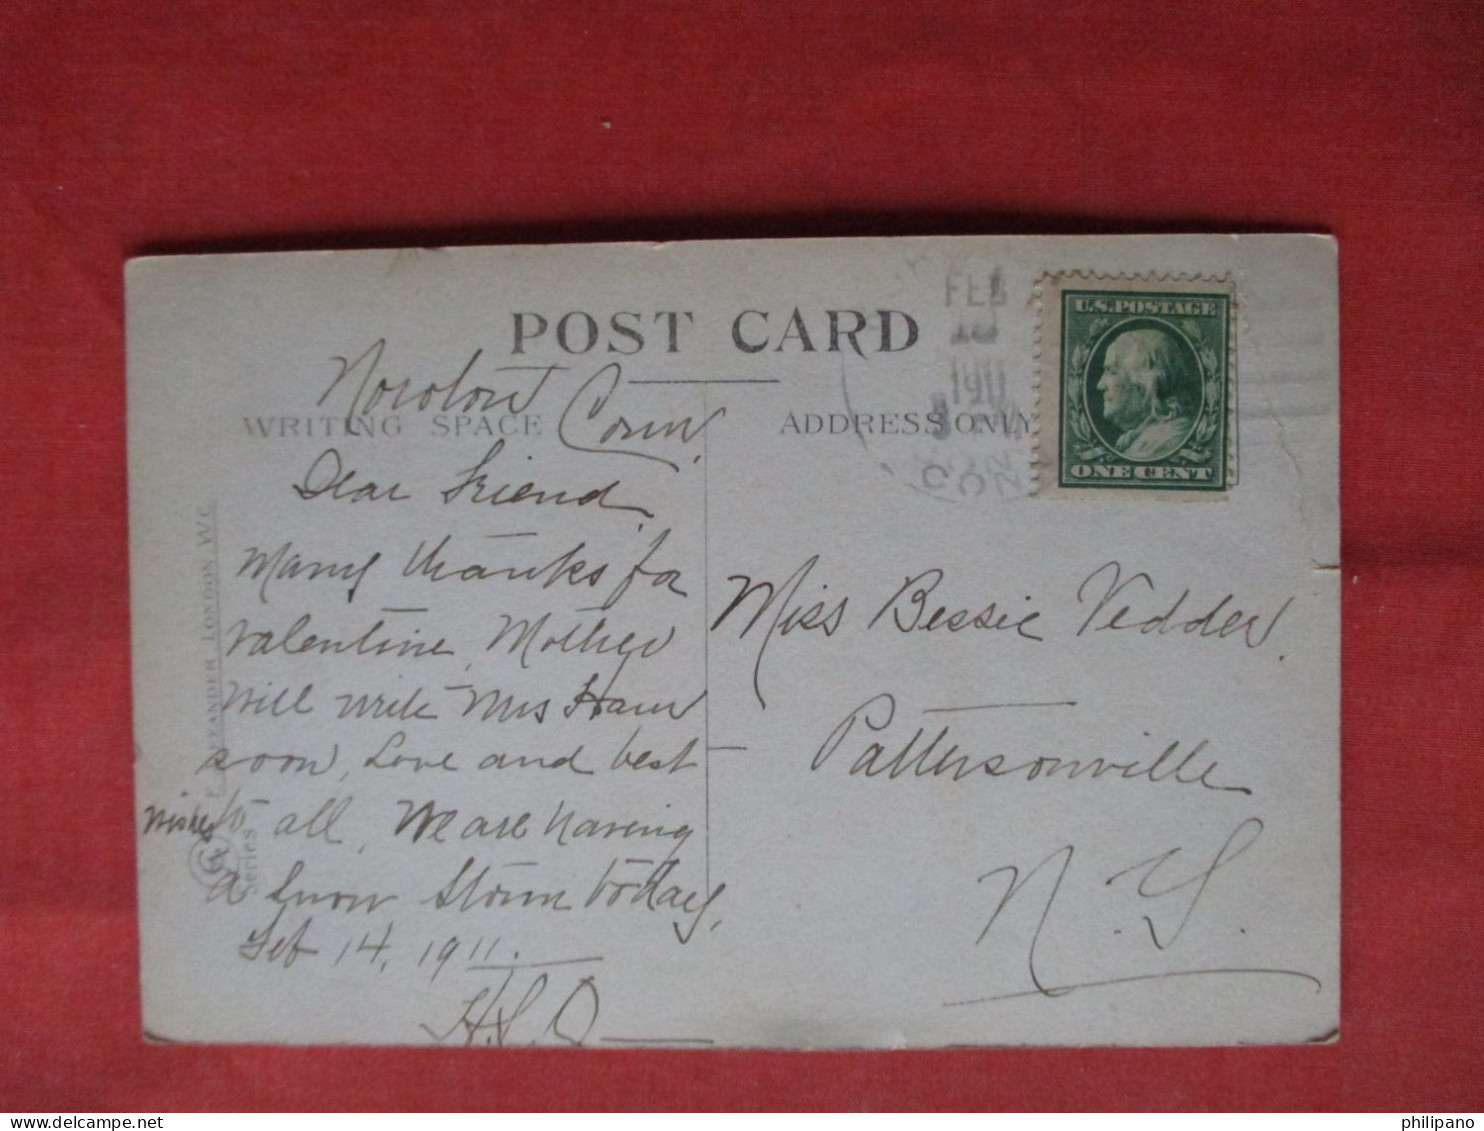 POST CARD
WRITING SPACE
ADDRESS ONLY
FEB
1911
CON
U.S. POSTAGE
ONE CENT
Noroton
Conn.
Dear Friend
Many thanks for
valentine, Mother
will write Mrs
soon, Love and best
wishes to all, We are having
a Snow Storm today,
Feb 14, 1911.
Miss Bessie Vedder.
Pattersonville
N.Y.
ALEXANDER LONDON, W.C.
Series
philipano